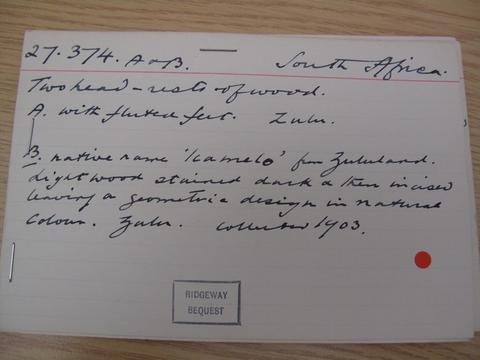 27.374. A & B. South Africa.
Two head-rests of wood.
A. with fluted feet. Zulu.
B. native name 'icamelo' from Zululand.
light wood stained dark & then incised
leaving a geometric design in natural
colour. Zulu. collected 1903.
RIDGEWAY
BEQUEST